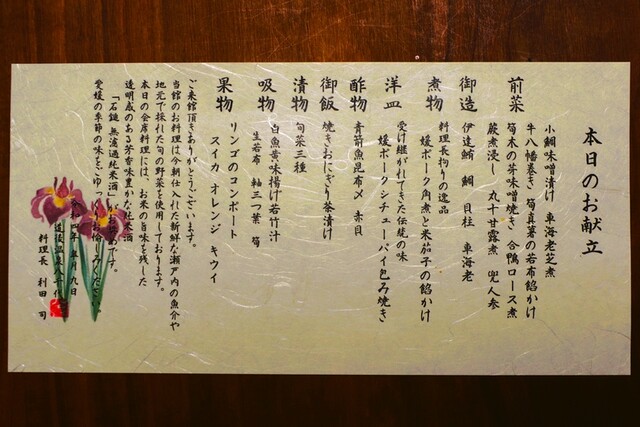 本日のお献立
前菜
小鯛味噌漬け 車海老芝煮
牛八幡巻き 筍真薯の若布餡かけ
筍木の芽味噌焼き 合鴨ロース煮
蕨煮浸し 丸十甘露煮 兜人参
御造
伊達鮪 鯛 貝柱 車海老
煮物
料理長拘りの逸品
媛ポーク角煮と米茄子の餡かけ
洋皿
受け継がれてきた伝統の味
媛ポークシチューパイ包み焼き
酢物
青箭魚昆布〆 赤貝
御飯
焼きおにぎり茶漬け
漬物
旬菜三種
吸物
白魚黄味揚げ若竹汁
生若布 軸三つ葉 筍
果物
リンゴのコンポート
スイカ オレンジ キウイ
ご来館頂きありがとうございます。
当館のお料理は今朝仕入れた新鮮な瀬戸内の魚介や
地元で採れた旬の野菜を使用しております。
本日の会席料理には、お米の旨味を残した
透明感のある芳香味豊かな純米酒
「石鎚 無濾過純米酒」がお勧めです。
愛媛の季節の味をごゆっくりお愉しみください。
令和四年 五月九日
道後温泉八千代
料理長 利田 司